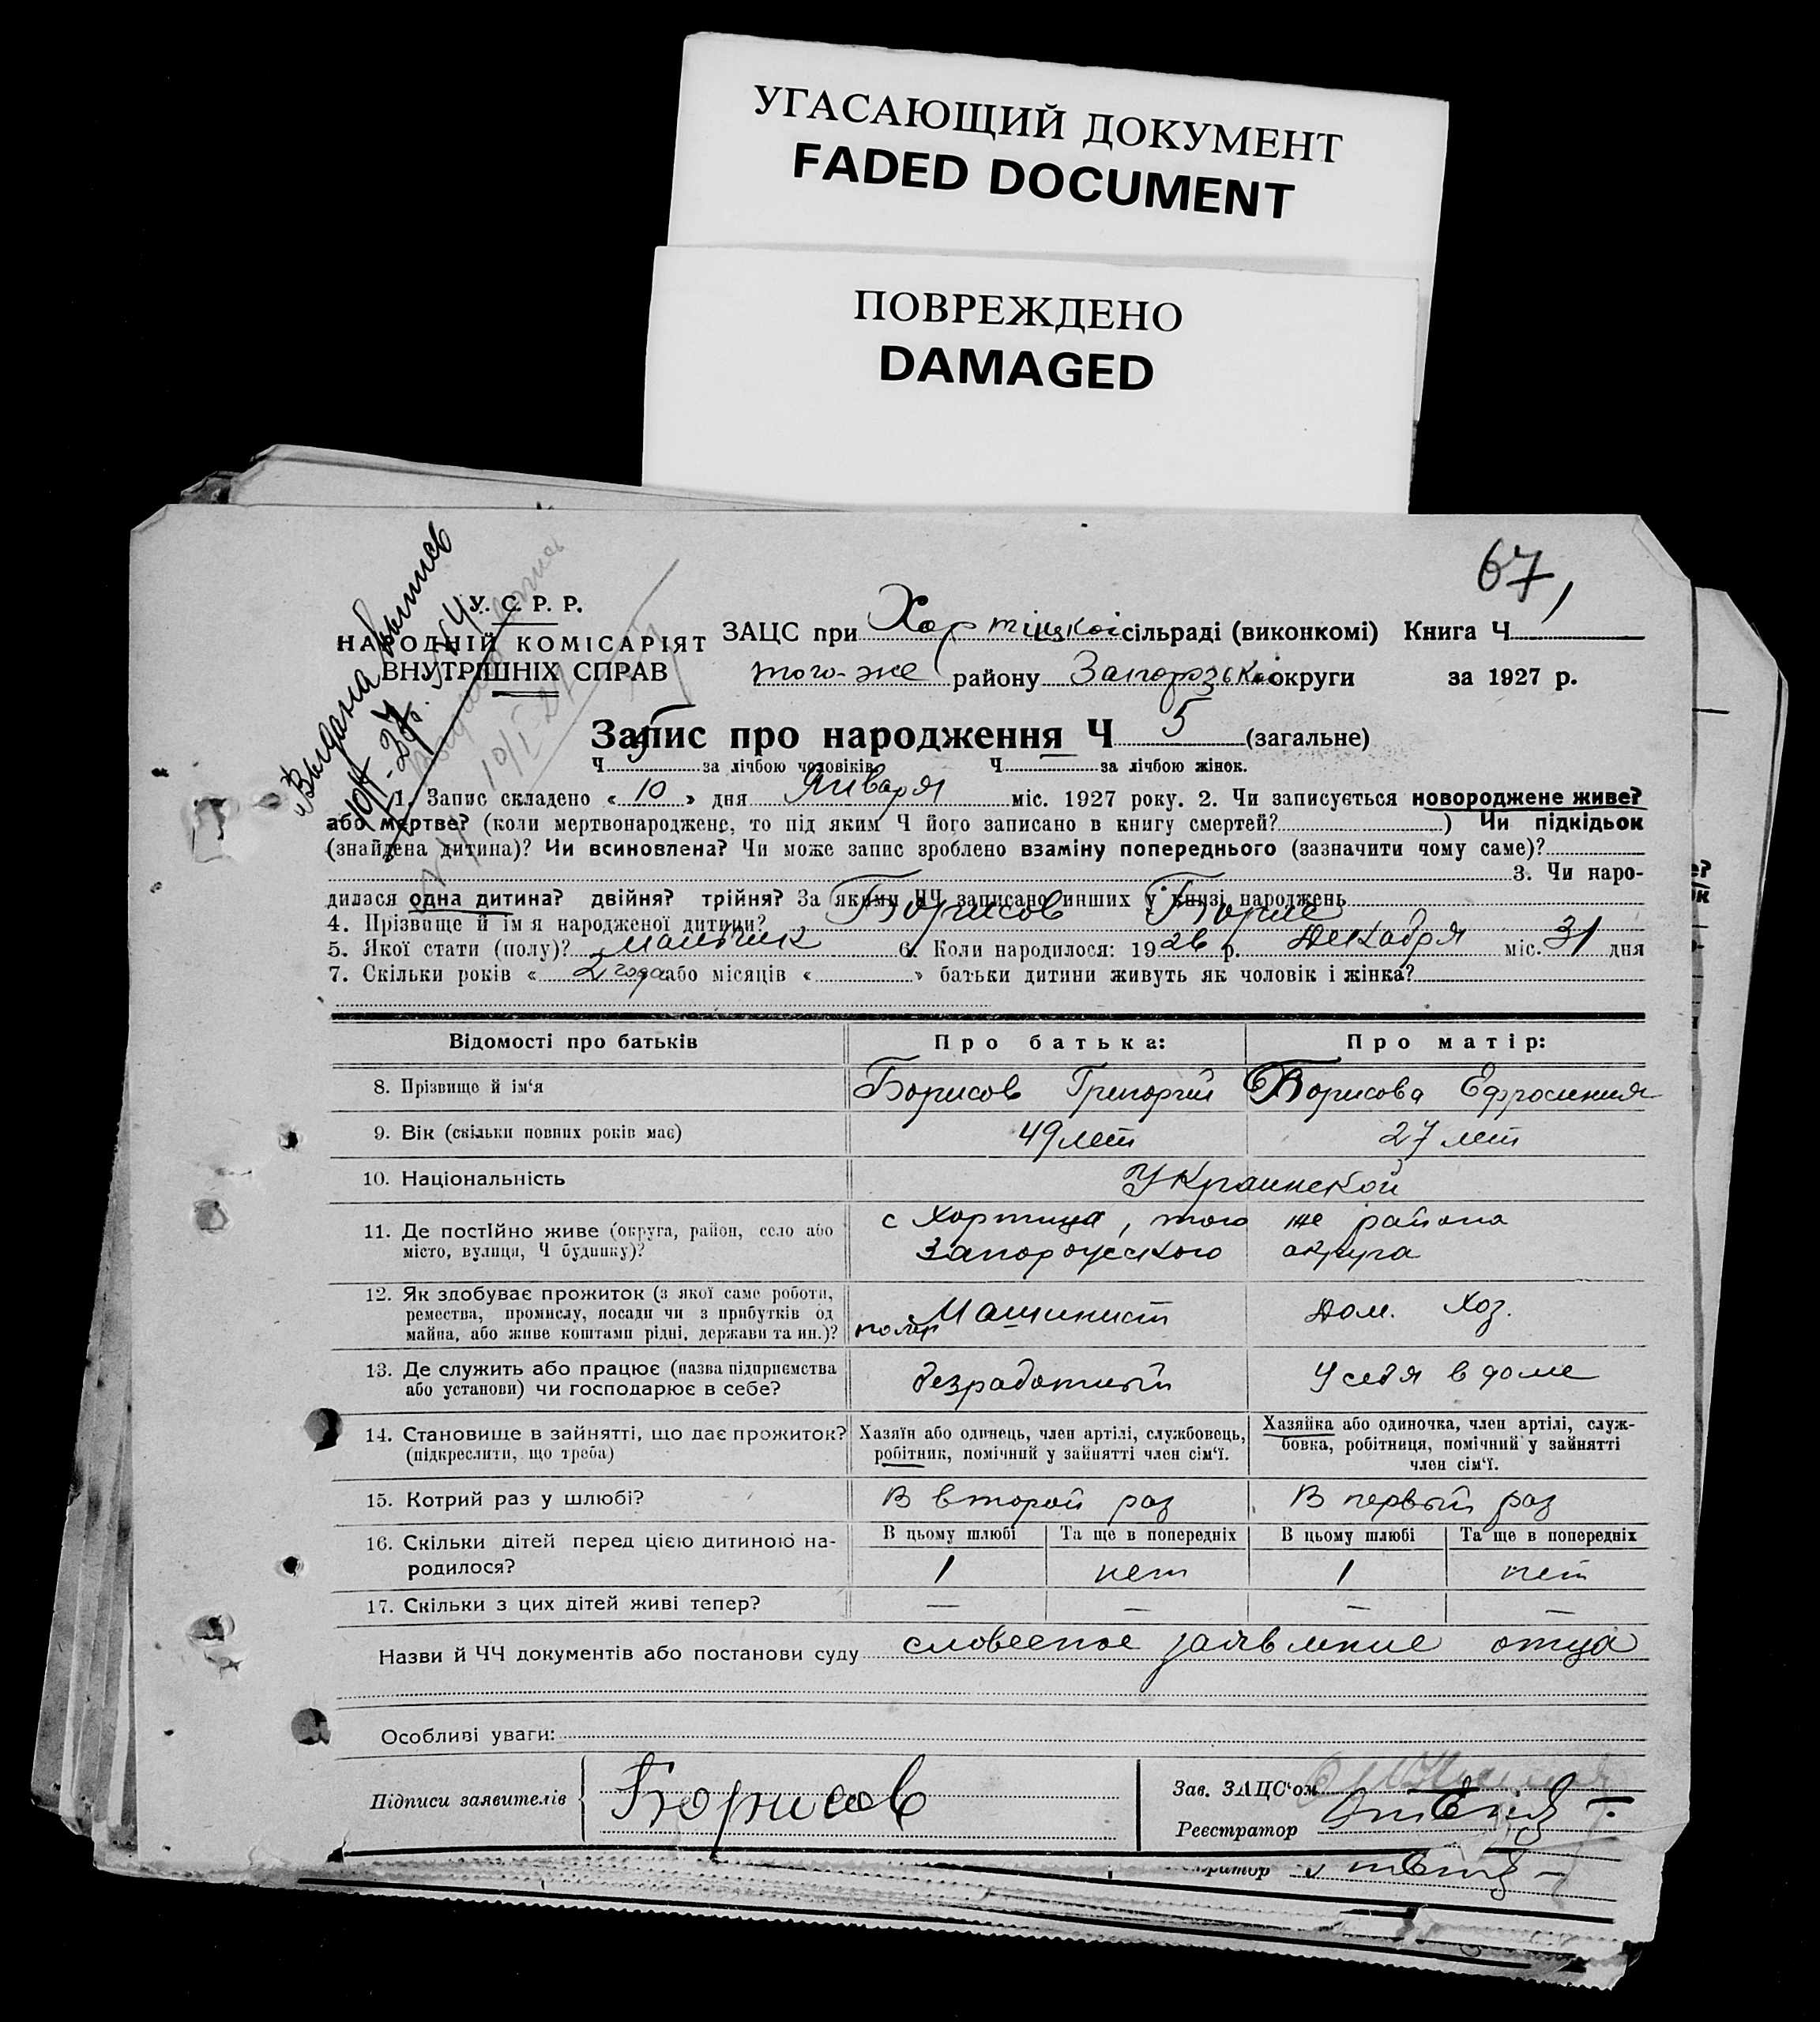 УГАСАЮЩИЙ ДОКУМЕНТ
FADED DOCUMENT
ПОВРЕЖДЕНО
DAMAGED
67
Выдана выпись
10/I-27 р.
У. С. Р. Р.
НАРОДНІЙ КОМІСАРІЯТ
ВНУТРІШНІХ СПРАВ
ЗАЦС при Хортицкой сільраді (виконкомі) Книга Ч 1
того-же району Запорозької округи за 1927 р.
Запис про народження Ч 5 (загальне)
Ч за лічбою чоловіків Ч за лічбою жінок.
1. Запис складено « 10 » дня Января міс. 1927 року. 2. Чи записується новороджене живе?
або мертве? (коли мертвонароджене, то під яким Ч його записано в книгу смертей? ) Чи підкідьок
(знайдена дитина)? Чи всиновлена? Чи може запис зроблено взаміну попереднього (зазначити чому саме)?
3. Чи наро-
дилася одна дитина? двійня? трійня? За якими ЧЧ записано инших у книзі народжень
4. Прізвище й ім'я народженої дитини? Борисов Борис
5. Якої стати (полу)? мальчик 6. Коли народилося: 1926 р. Декабря міс. 31 дня
7. Скільки років « 2 года або місяців « » батьки дитини живуть як чоловік і жінка?
Відомості про батьків Про батька: Про матір:
8. Прізвище й ім'я Борисов Григорий Борисова Ефросиния
9. Вік (скільки повних років має) 49 лет 27 лет
10. Національність Украинской
11. Де постІйно живе (округа, район, село або місто, вулиця, Ч будинку)? с Хортица, того же района
Запорожского округа
12. Як здобуває прожиток (з якої саме роботи, ремества, промислу, посади чи з прибутків од майна, або живе коштами рідні, держави та ин.)? Машинист Дом. Хоз.
13. Де служить або працює (назва підприємства або установи) чи господарює в себе? безработный У себя в доме
14. Становище в зайнятті, що дає прожиток? (підкреслити, що треба) Хазяїн або одинець, член артілі, службовець, робітник, помічний у зайнятті член сім'ї. Хазяйка або одиночка, член артілі, служ-
бовка, робітниця, помічний у зайнятті
член сім'ї.
15. Котрий раз у шлюбі? В второй раз В первый раз
16. Скільки дітей перед цією дитиною на-
родилося? В цьому шлюбі Та ще в попередніх В цьому шлюбі Та ще в попередніх
1 нет 1 нет
17. Скільки з цих дітей живі тепер? — — — —
Назви й ЧЧ документів або постанови суду словесное заявление отца
Особливі уваги:
Підписи заявителів Борисов
Зав. ЗАЦС'ом
Реєстратор